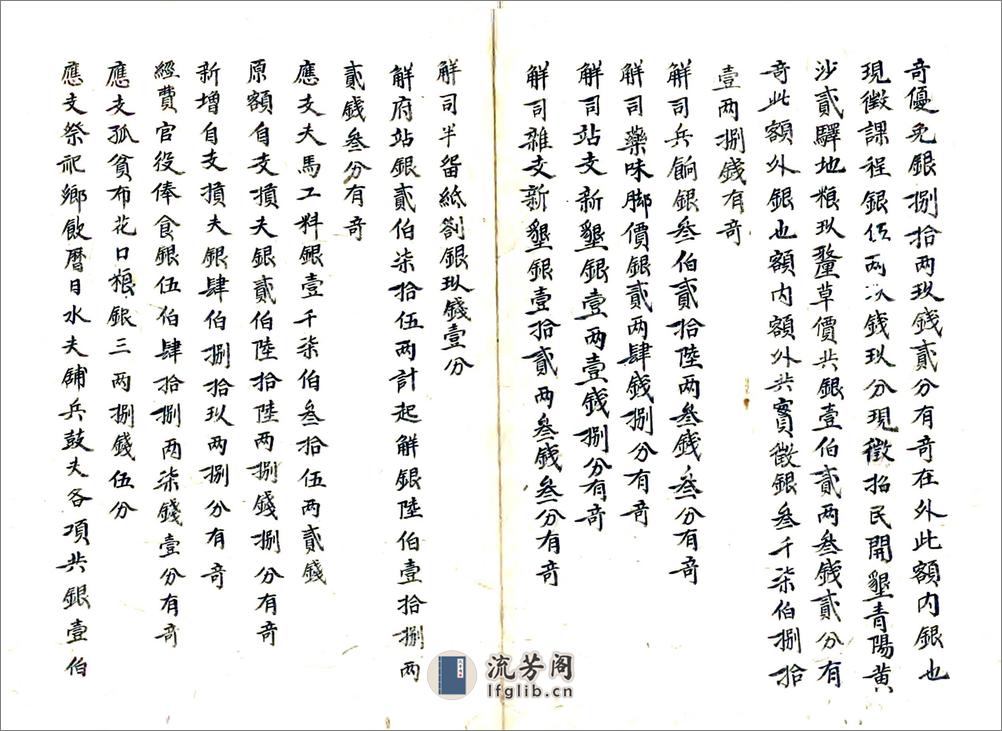 奇優免銀捌拾两玖錢貳分有奇在外此額内銀也
現徵課程銀伍两 錢玖分現徵招民開墾青陽黄
沙貳驛地粮玖釐草價共銀壹伯貳两叁錢貳分有
奇此額外銀也額内額外共實徵銀叁千柒伯捌拾
壹两捌錢有奇
解司兵餉銀叁伯貳拾陸两叁錢叁分有奇
解司藥味脚價銀貳两肆錢捌分有奇
解司站支新墾銀壹两壹錢捌分有奇
解司雜支新墾銀壹拾貳两叁錢叁分有奇
解司半留紙劄銀玖錢壹分
解府站銀貳伯柒拾伍两計起解銀陸伯壹拾捌两
貳錢叁分有奇
應支夫馬工料銀壹千柒伯叁拾伍两貳錢
原額自支摃夫銀貳伯陸拾陸两捌錢捌分有奇
新增自支摃夫銀肆伯捌拾玖两捌分有奇
經費官役俸食銀伍伯肆拾捌两柒錢壹分有奇
應支孤貧布花口粮銀三两捌錢伍分
應支祭祀鄉飲曆日水夫舖兵鼓夫各項共銀壹伯
流芳阁
lfglib.cn